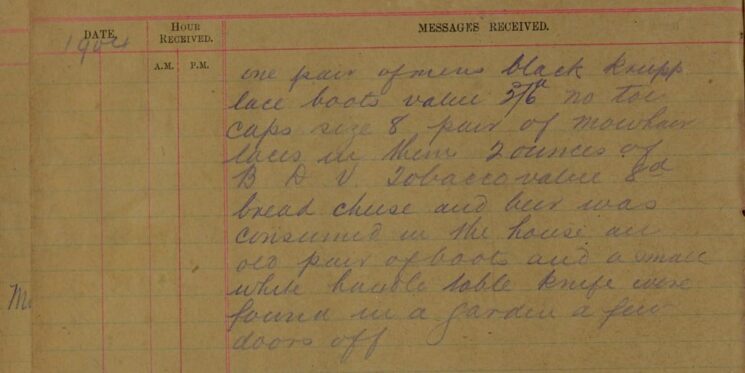 DATE.
HOUR RECEIVED.
MESSAGES RECEIVED.
1904
A.M. P.M.
one pair of mens black Krupp
lace boots value 5/6d no toe
caps size 8 pair of mowhair
laces in them 2 ounces of
B D V Tobacco value 8d
bread cheese and beer was
consumed in the house an
old pair of boots and a small
white handle table knife were
found in a garden a few
doors off